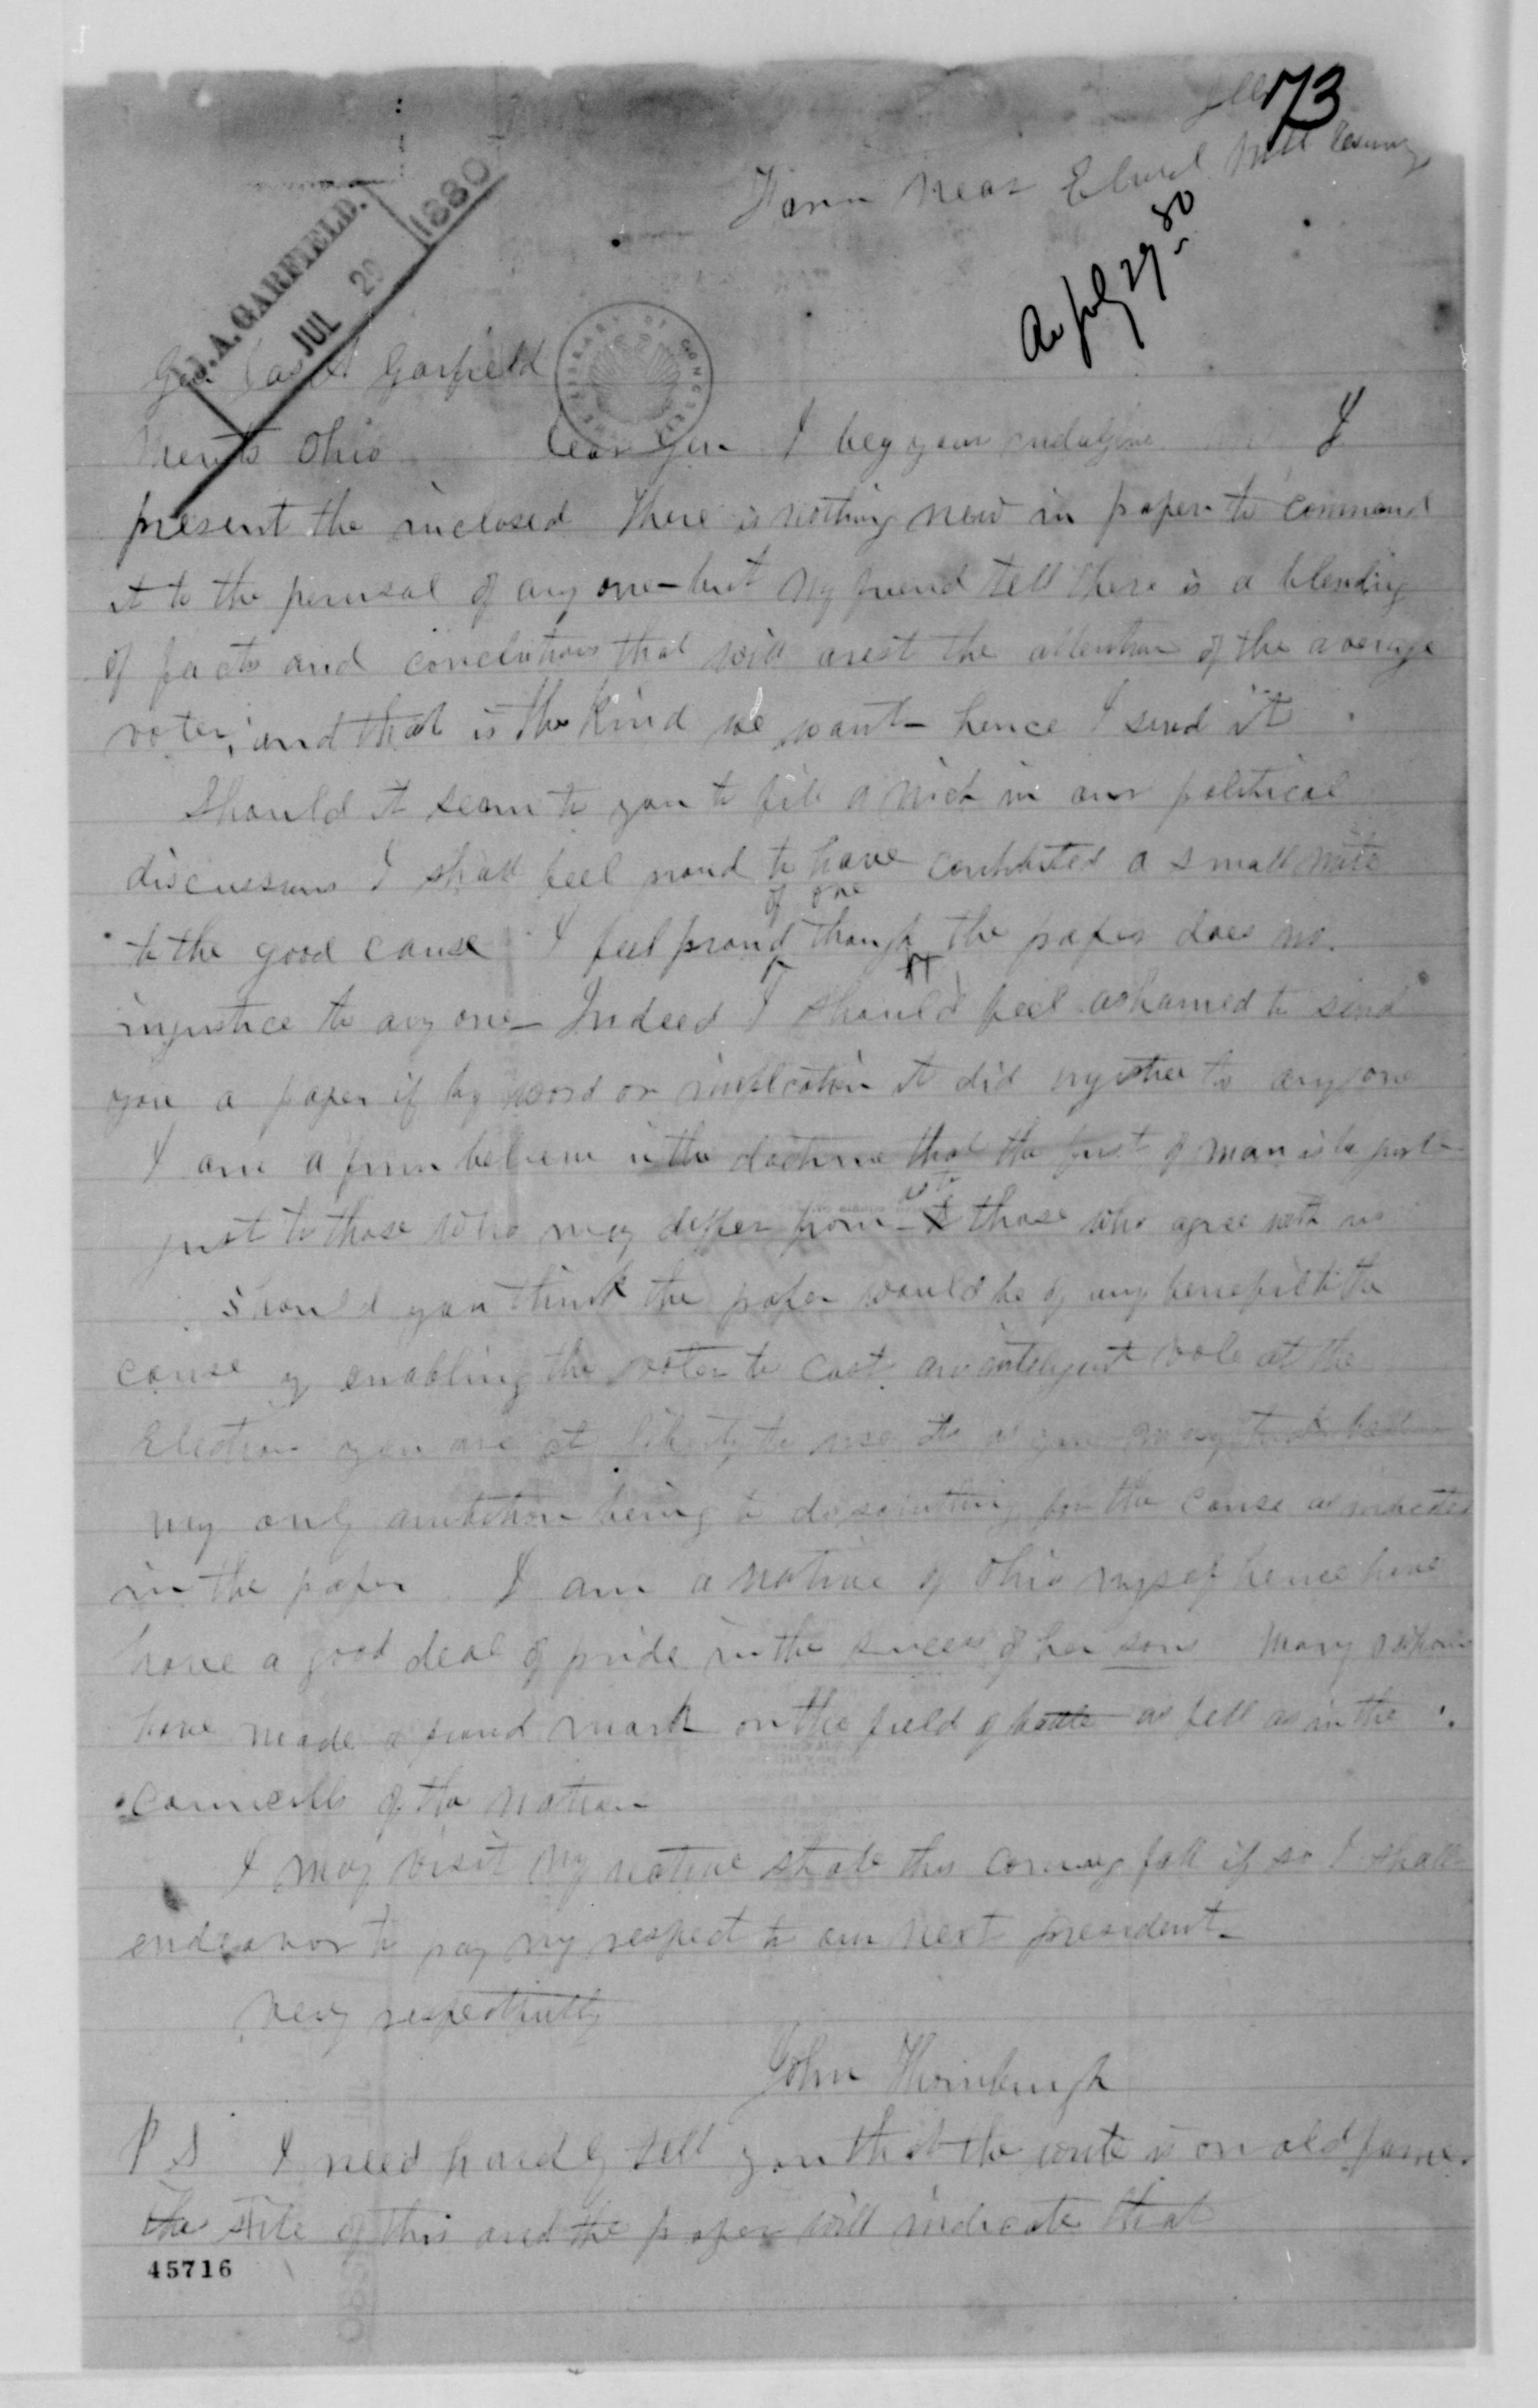 173
Farm Near Elwood Will County
An July 29 80
J.A. GARFIELD.
JUL 29 1880
LIBRARY OF CONGRESS
Gen Jas A Garfield
Mentor Ohio Dear Gen I beg your indulgence I
present the inclosed There is nothing new in paper to commend
it to the perusal of any one – but my friend tell there is a blending
of facts and conclutions that will arest the attention of the average
voter, and that is the kind we want – hence I send it
Should it seam to you to fill a nich in our political
discussions I shall feel proud to have contributed a small mite
to the good cause I feel proud of one though the paper does no
injustice to any one – Indeed I should feel ashamed to send
you a paper if by word or implication it did injustice to any one
I am a firm believer in the doctrine that the first of man is to be just –
just to those who may differ from as to those who agree with us
Should you think the paper would be of any benefit to the
cause of enabling the voter to cast an inteligent vote at the
Election you are at liberty to use it as you may think best
my only ambition being to do something for the cause as indicated
in the paper I am a native of Ohio myself hence have
have a good deal of pride in the sucess of her sons Many
have made a proud mark on the field of battle as fell as in the
councills of the nation
I may visit my native state this coming fall if so I shall
endeavor to pay my respect to our next president –
Very respectfully
John Thornburgh
P S I need hardly tell you that the write is an old farmer
The stile of this and the paper will indicate that
45716